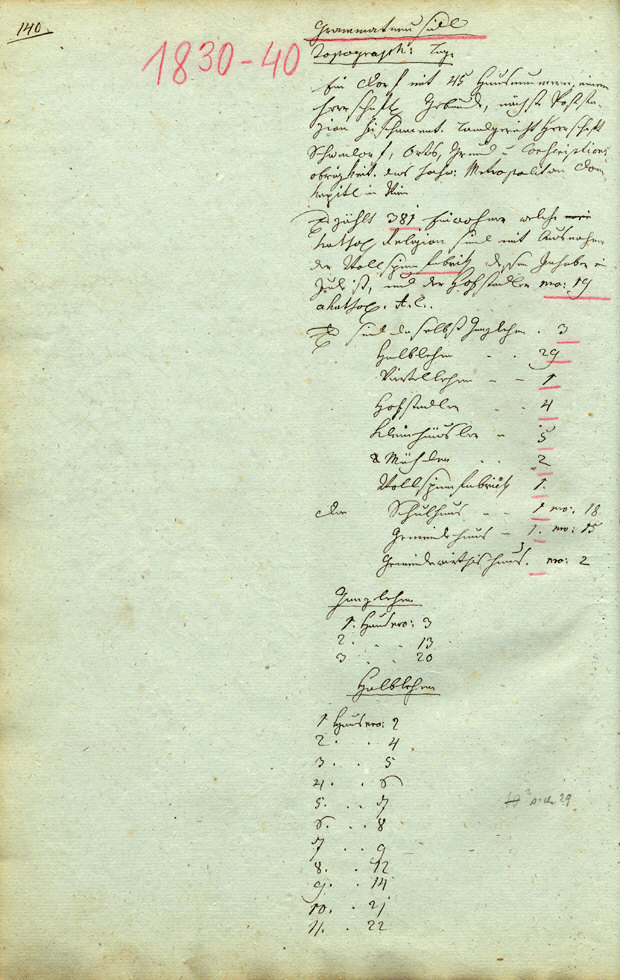 140.
1830-40
Grammatneusidl
Topograph: Lage
Ein Dorf mit 45 Hausnummern, einem
herrschaftl. Gebäude, nächste Poststa-
zion Fischament. Landgericht Herrschaft
Schwadorf, Orts, Grund u Conscriptions
obrigkeit das hochw: Metropolitan Dom-
kapitl in Wien
Es zählt 381 Einwohner welche
kathol. Religion sind mit Ausnahme
der Wollspinnfabrik dessen Inhaber ein
Jude ist, und der Hofstadler nro: 19
akathol. A. C.
Es sind daselbst Ganzlehen . 3
Halblehen . . 29
Viertellehen - - 1
Hofstadler . . 4
Kleinhäusler - 5
Mühlen . . 2
Wollspinnfabrick 1.
Das Schulhaus - - 1 nro: 18
Gemeindehaus - 1. nro: 15
Gemeindewirthshaus. nro: 2
Ganzlehen
1. Hausnro: 3
2. . . 13
3 . . 20
Halblehen
1 Hausnro: 2
2 . . 4
3. . . 5
4. . . 6
5. . . 7
6. . . 8
7 . . 9
8. . 12
9. . 14
10. . 21
11. . 22
29